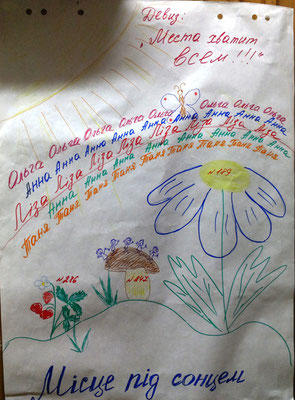 Девиз:
„Места хватит
всем!!!"
Ольга Ольга Ольга Ольга Ольга Ольга Ольга Ольга
Анна Анна Анна Анна Анна Анна Анна Анна Анна
Ліза Ліза Ліза Ліза Ліза Ліза Ліза Ліза
Анна Анна Анна Анна Анна Анна Анна Анна
Таня Таня Таня Таня Таня Таня Таня Таня
№119
№276
№212
Місце під сонцем